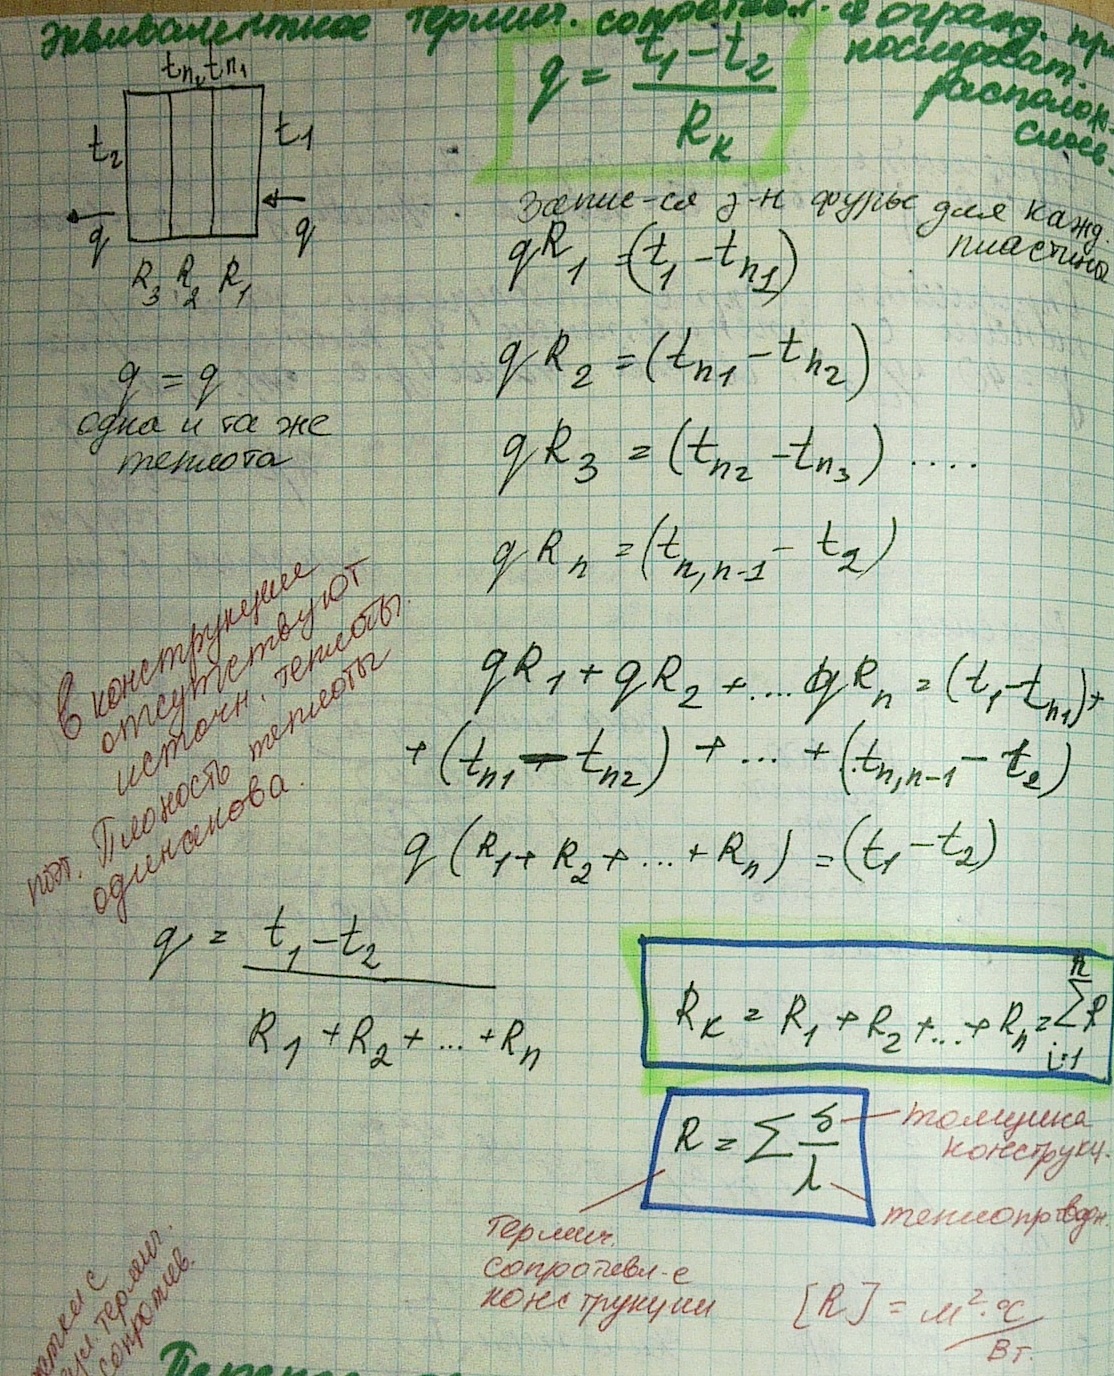 Эквивалентное термич. сопротивл. огранд. при
последоват.
располож.
слоев.
q = (t₁ - t₂) / Rₖ
tₙ₂ tₙ₁
t₂
t₁
q
q
R₃ R₂ R₁
Запис-ся з-н Фурье для кажд.
пластины
qR₁ = (t₁ - tₙ₁)
qR₂ = (tₙ₁ - tₙ₂)
qR₃ = (tₙ₂ - tₙ₃) ....
qRₙ = (tₙ,ₙ₋₁ - t₂)
q = q
одна и та же
теплота
В конструкции
отсутствуют
источн. теплоты.
Плоность теплоты
пот. одинакова.
qR₁ + qR₂ + .... qRₙ = (t₁ - tₙ₁) +
+ (tₙ₁ - tₙ₂) + ... + (tₙ,ₙ₋₁ - t₂)
q (R₁ + R₂ + ... + Rₙ) = (t₁ - t₂)
q = (t₁ - t₂) / (R₁ + R₂ + ... + Rₙ)
n
Rₖ = R₁ + R₂ + ... + Rₙ = ∑ R
i=1
R = ∑ δ/λ
толщина
конструкц.
теплопроводн
термич.
сопротивл-е
конструкции
[R] = м²·°С / Вт.
с
термич.
сопротив.